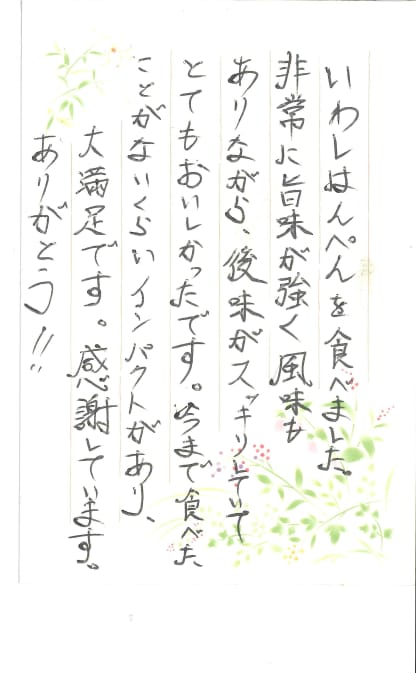 いわしはんぺんを食べました。
非常に旨味が強く風味も
ありながら、後味がスッキリしていて
とてもおいしかったです。今まで食べた
ことがないくらいインパクトがあり、
大満足です。感謝しています。
ありがとう!!